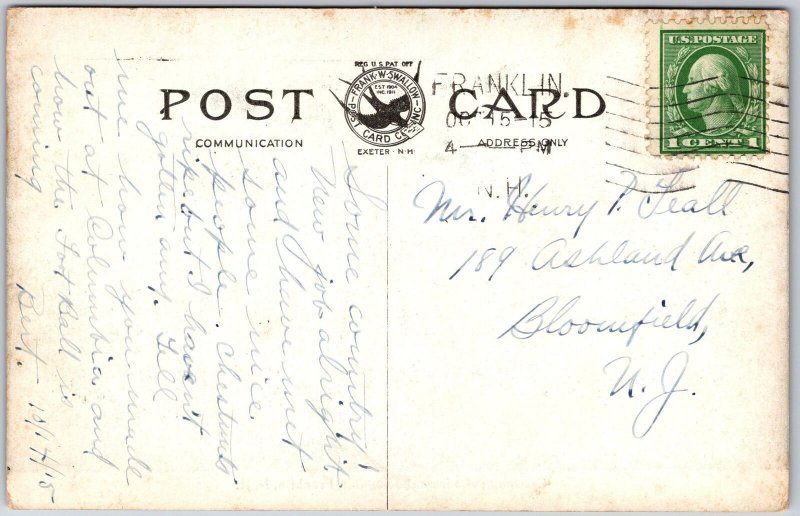 REG U.S. PAT OFF
POST CARD
FRANK·W·SWALLOW
EST 1904
INC. 1911
POST CARD CO. INC.
EXETER · N·H·
COMMUNICATION
ADDRESS ONLY
FRANKLIN
OC 15-15
4 PM
N.H.
U.S. POSTAGE
1 CENT 1
Mr. Henry P. Teall
189 Ashland Ave,
Bloomfield,
N. J.
Some country!
New job alright
and I have met
some nice
people. Chestnuts
ripe but I haven't
gotten any. Tell
me how you made
out at Columbia and
how the Foot Ball is
coming
Bert. 10/14/15